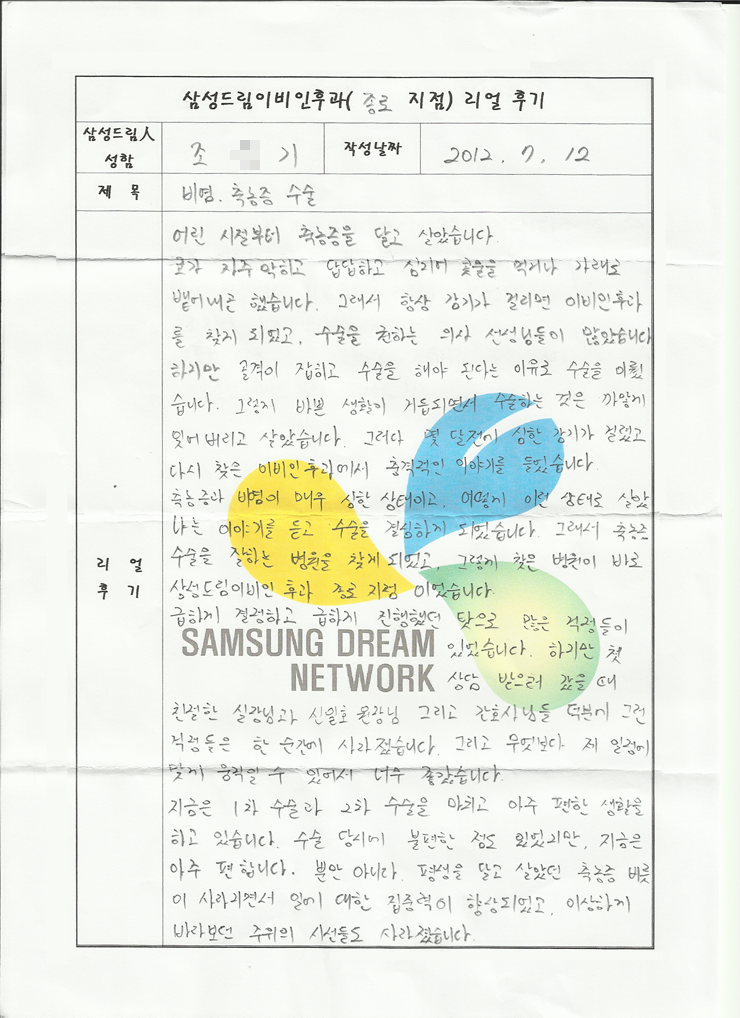 삼성드림이비인후과( 종로 지점) 리얼 후기
삼성드림人
성함
조 기
작성날짜
2012. 7. 12
제 목
비염. 축농증 수술
리 얼
후 기
어린 시절부터 축농증을 달고 살았습니다.
코가 자주 막히고 답답하고 심지어 콧물을 먹거나 가래로
뱉어내곤 했습니다. 그래서 항상 감기가 걸리면 이비인후과
를 찾게 되었고, 수술을 권하는 의사 선생님들이 많았습니다
하지만 골격이 잡히고 수술을 해야 된다는 이유로 수술을 미뤘
습니다. 그렇지 바쁜 생활이 거듭되면서 수술하는 것은 까맣게
잊어버리고 살았습니다. 그러다 몇 달전에 심한 감기가 걸렸고
다시 찾은 이비인후과에서 충격적인 이야기를 들었습니다.
축농증과 비염이 매우 심한 상태이고, 어떻게 이런 상태로 살았
냐는 이야기를 듣고 수술을 결심하게 되었습니다. 그래서 축농증
수술을 잘하는 병원을 찾게 되었고, 그렇게 찾은 병원이 바로
삼성드림이비인후과 종로 지점 이었습니다.
급하게 결정하고 급하게 진행했던 탓으로 많은 걱정들이
있었습니다. 하지만 첫
상담 받으러 갔을 때
SAMSUNG DREAM
NETWORK
친절한 실장님과 신일호 원장님 그리고 간호사님들 덕분에 그런
걱정들은 한 순간에 사라졌습니다. 그리고 무엇보다 제 일정에
맞게 움직일 수 있어서 너무 좋았습니다.
지금은 1차 수술과 2차 수술을 마치고 아주 편한 생활을
하고 있습니다. 수술 당시에 불편한 점도 있었지만, 지금은
아주 편합니다. 뿐안 아니다. 평생을 달고 살았던 축농증 버릇
이 사라지면서 일에 대한 집중력이 향상되었고, 이상하게
바라보던 주위의 시선들도 사라졌습니다.